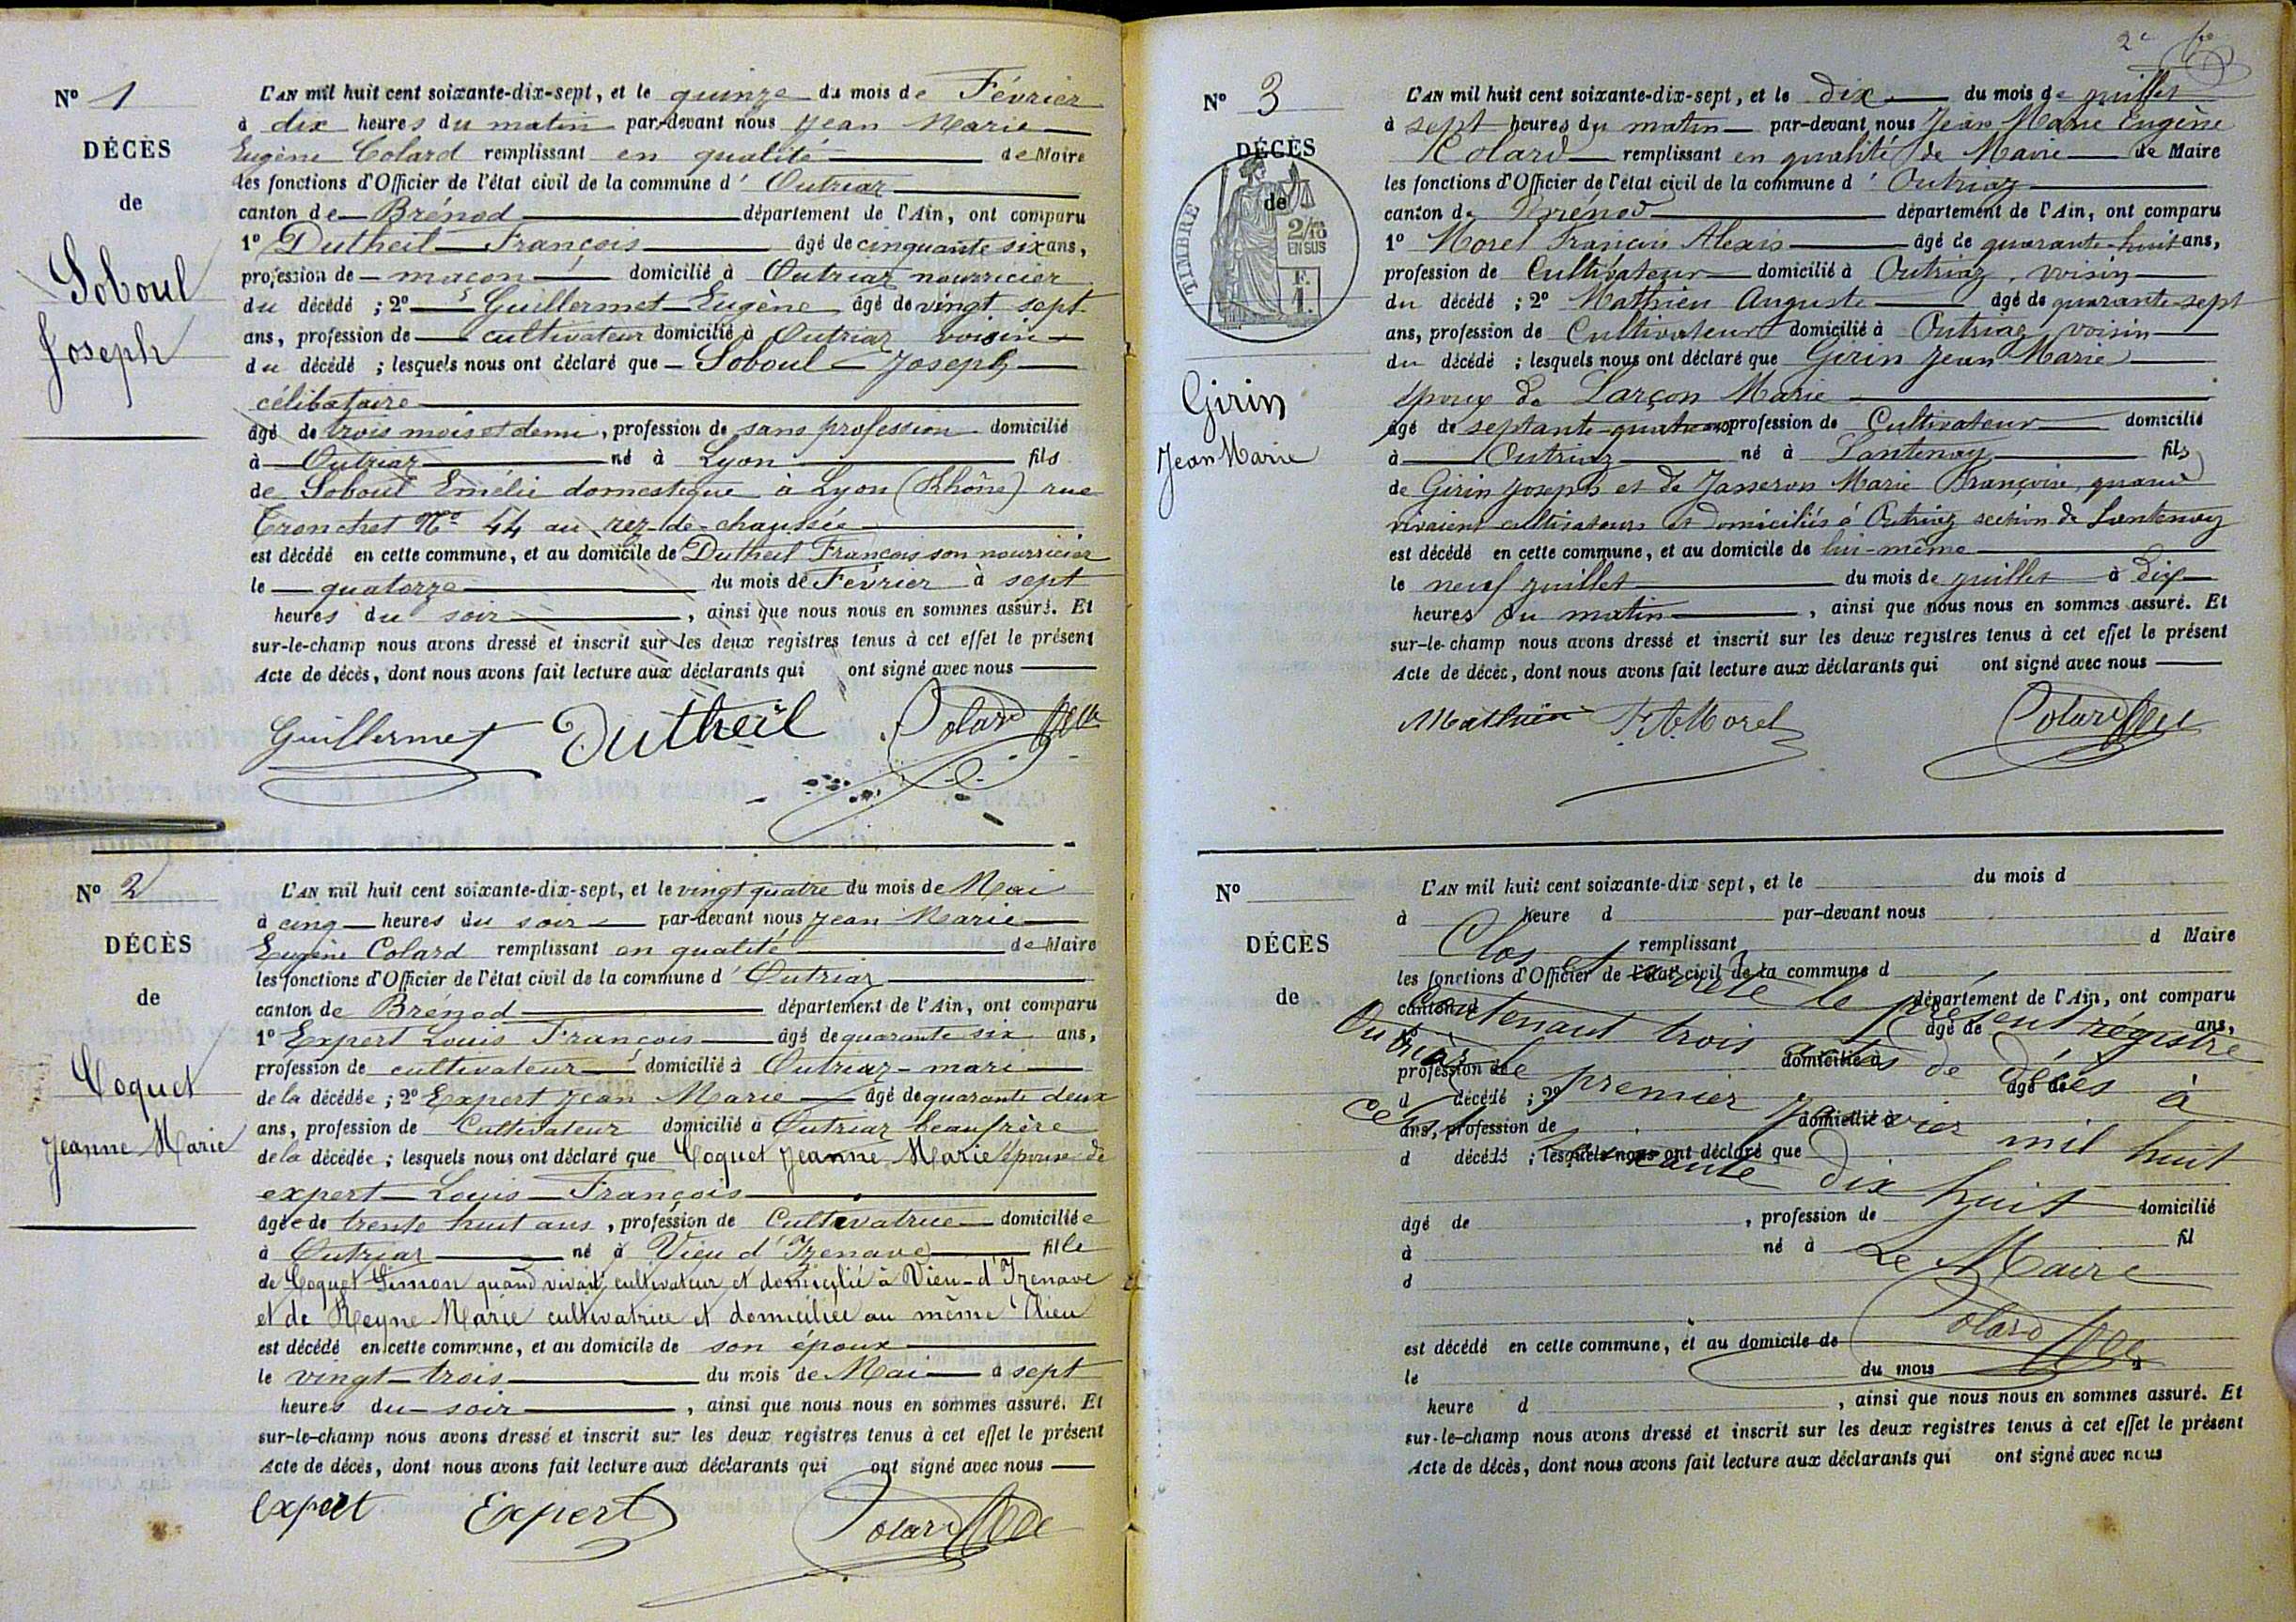 N° 1
DÉCÈS
de
Soboul
Joseph
L'AN mil huit cent soixante-dix-sept, et le quinze du mois de Février
à dix heures du matin par-devant nous Jean Marie
Eugène Colard remplissant en qualité de Maire
les fonctions d'Officier de l'état civil de la commune d' Outriaz
canton de Brénod département de l'Ain, ont comparu
1° Dutheil François âgé de cinquante six ans,
profession de maçon domicilié à Outriaz nourricier
du décédé ; 2° Guillermet Eugène âgé de vingt sept
ans, profession de cultivateur domicilié à Outriaz voisin
du décédé ; lesquels nous ont déclaré que Soboul Joseph
célibataire
âgé de trois mois et demi, profession de sans profession domicilié
à Outriaz né à Lyon fils
de Soboul Emélie domestique à Lyon (Rhône) rue
Tronchet N° 44 au rez-de-chaussée
est décédé en cette commune, et au domicile de Dutheil François son nourricier
le quatorze du mois de Février à sept
heures du soir, ainsi que nous nous en sommes assuré. Et
sur-le-champ nous avons dressé et inscrit sur les deux registres tenus à cet effet le présent
Acte de décès, dont nous avons fait lecture aux déclarants qui ont signé avec nous
Guillermet Dutheil Colard
N° 2
DÉCÈS
de
Coquet
Jeanne Marie
L'AN mil huit cent soixante-dix-sept, et le vingt quatre du mois de Mai
à cinq heures du soir par-devant nous Jean Marie
Eugène Colard remplissant en qualité de Maire
les fonctions d'Officier de l'état civil de la commune d' Outriaz
canton de Brénod département de l'Ain, ont comparu
1° Expert Louis François âgé de quarante six ans,
profession de cultivateur domicilié à Outriaz - mari
de la décédée ; 2° Expert Jean Marie âgé de quarante deux
ans, profession de Cultivateur domicilié à Outriaz beaufrère
de la décédée ; lesquels nous ont déclaré que Coquet Jeanne Marie épouse de
expert Louis François
âgée de trente huit ans, profession de Cultivatrice domiciliée
à Outriaz né à Vieu d'Izenave fille
de Coquet Simon quand vivait cultivateur et domicilié à Vieu-d'Izenave
et de Reyne Marie cultivatrice et domiciliée au même lieu
est décédé en cette commune, et au domicile de son époux
le vingt-trois du mois de Mai à sept
heures du soir, ainsi que nous nous en sommes assuré. Et
sur-le-champ nous avons dressé et inscrit sur les deux registres tenus à cet effet le présent
Acte de décès, dont nous avons fait lecture aux déclarants qui ont signé avec nous
Expert Expert Colard
2e
N° 3
DÉCÈS
de
TIMBRE
2/10
EN SUS
F.
1.
Girin
Jean Marie
L'AN mil huit cent soixante-dix-sept, et le dix du mois de juillet
à sept heures du matin par-devant nous Jean Marie Eugène
Colard remplissant en qualité de Maire de Maire
les fonctions d'Officier de l'état civil de la commune d' Outriaz
canton de Brénod département de l'Ain, ont comparu
1° Morel François Alexis âgé de quarante-huit ans,
profession de Cultivateur domicilié à Outriaz, voisin
du décédé ; 2° Mathieu Auguste âgé de quarante-sept
ans, profession de Cultivateur domicilié à Outriaz voisin
du décédé ; lesquels nous ont déclaré que Girin Jean Marie
époux de Larçon Marie
âgé de septante-quatre ans profession de Cultivateur domicilié
à Outriaz né à Lantenay fils
de Girin Joseph et de Jasseron Marie Françoise, quand
vivaient cultivateurs et domiciliés à Outriaz section de Lantenay
est décédé en cette commune, et au domicile de lui-même
le neuf juillet du mois de juillet à dix
heures du matin, ainsi que nous nous en sommes assuré. Et
sur-le-champ nous avons dressé et inscrit sur les deux registres tenus à cet effet le présent
Acte de décès, dont nous avons fait lecture aux déclarants qui ont signé avec nous
Mathieu F. A. Morel Colard
N°
DÉCÈS
de
L'AN mil huit cent soixante-dix-sept, et le du mois d
à heure d par-devant nous
remplissant d Maire
les fonctions d'Officier de l'état civil de la commune d
canton d département de l'Ain, ont comparu
1° âgé de ans,
profession de domicilié à
d décédé ; 2° âgé de
ans, profession de domicilié à
d décédé ; lesquels nous ont déclaré que
âgé de , profession de domicilié
à né à fil
d
est décédé en cette commune, et au domicile de
le du mois à
heure d , ainsi que nous nous en sommes assuré. Et
sur-le-champ nous avons dressé et inscrit sur les deux registres tenus à cet effet le présent
Acte de décès, dont nous avons fait lecture aux déclarants qui ont signé avec nous
Clos et arrêté le présent régistre
Contenant trois actes de décès à
Outriaz le premier Janvier mil huit
cent soixante dix huit
Le Maire
Colard